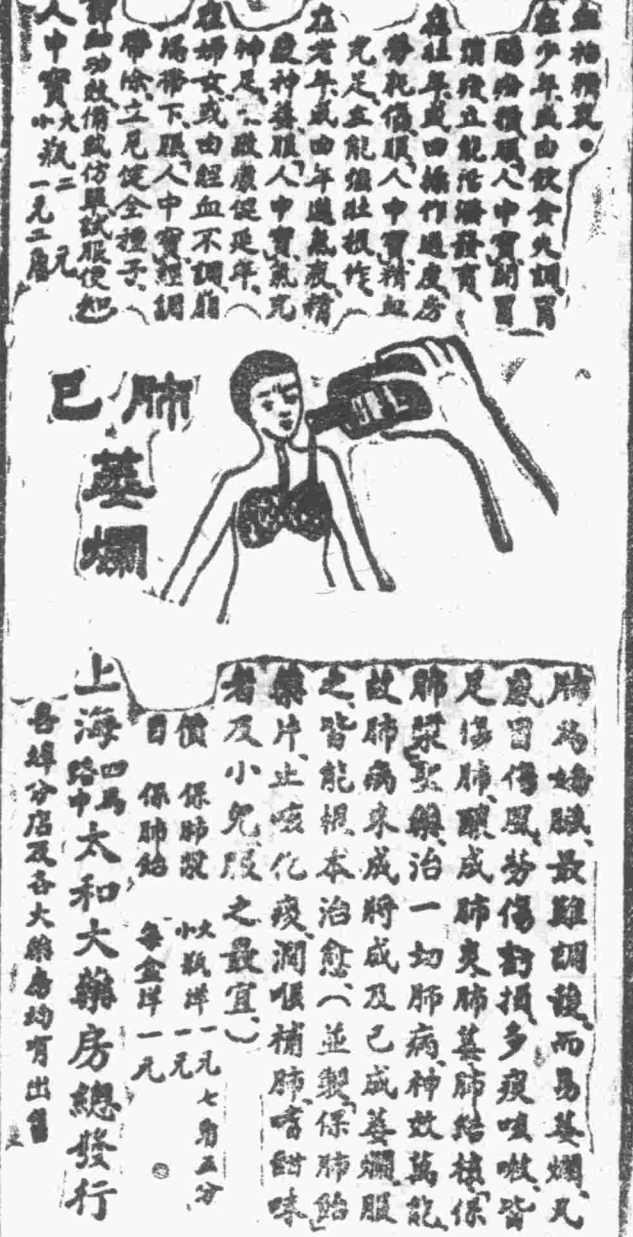 在少年或由飲食失調胃
服「人中寶」開胃
立能活潑發育
在壯年或由操作過度房
勞耗傷服「人中寶」精血
充足立能強壯操作
在老年或由年邁氣衰精
虛神萎服「人中寶」氣充
神足康促延年
在婦女或由經血不調崩
漏帶下服「人中寶」經調
帶除立見健全種子
詳細功效備或仿單試服便知
人中寶 大瓶二元
小瓶一元二角
肺已
萎
爛
肺為嬌臟最難調護而易萎爛凡
感冒傷風勞傷虧損多痰咳嗽皆
足傷肺釀成肺炎肺萎肺結核「保
肺漿」聖藥治一切肺病神效萬能
故肺病未成將成及已成萎爛服
之皆能根本治愈（並製「保肺飴」
藥片止咳化痰潤喉補肺嗜甜味
者及小兒服之最宜）
價 保肺漿 大瓶洋一元七角五分
小瓶洋一元
目 保肺飴 每盒洋一元
上海四馬路中太和大藥房總發行
各埠分店及各大藥房均有出售